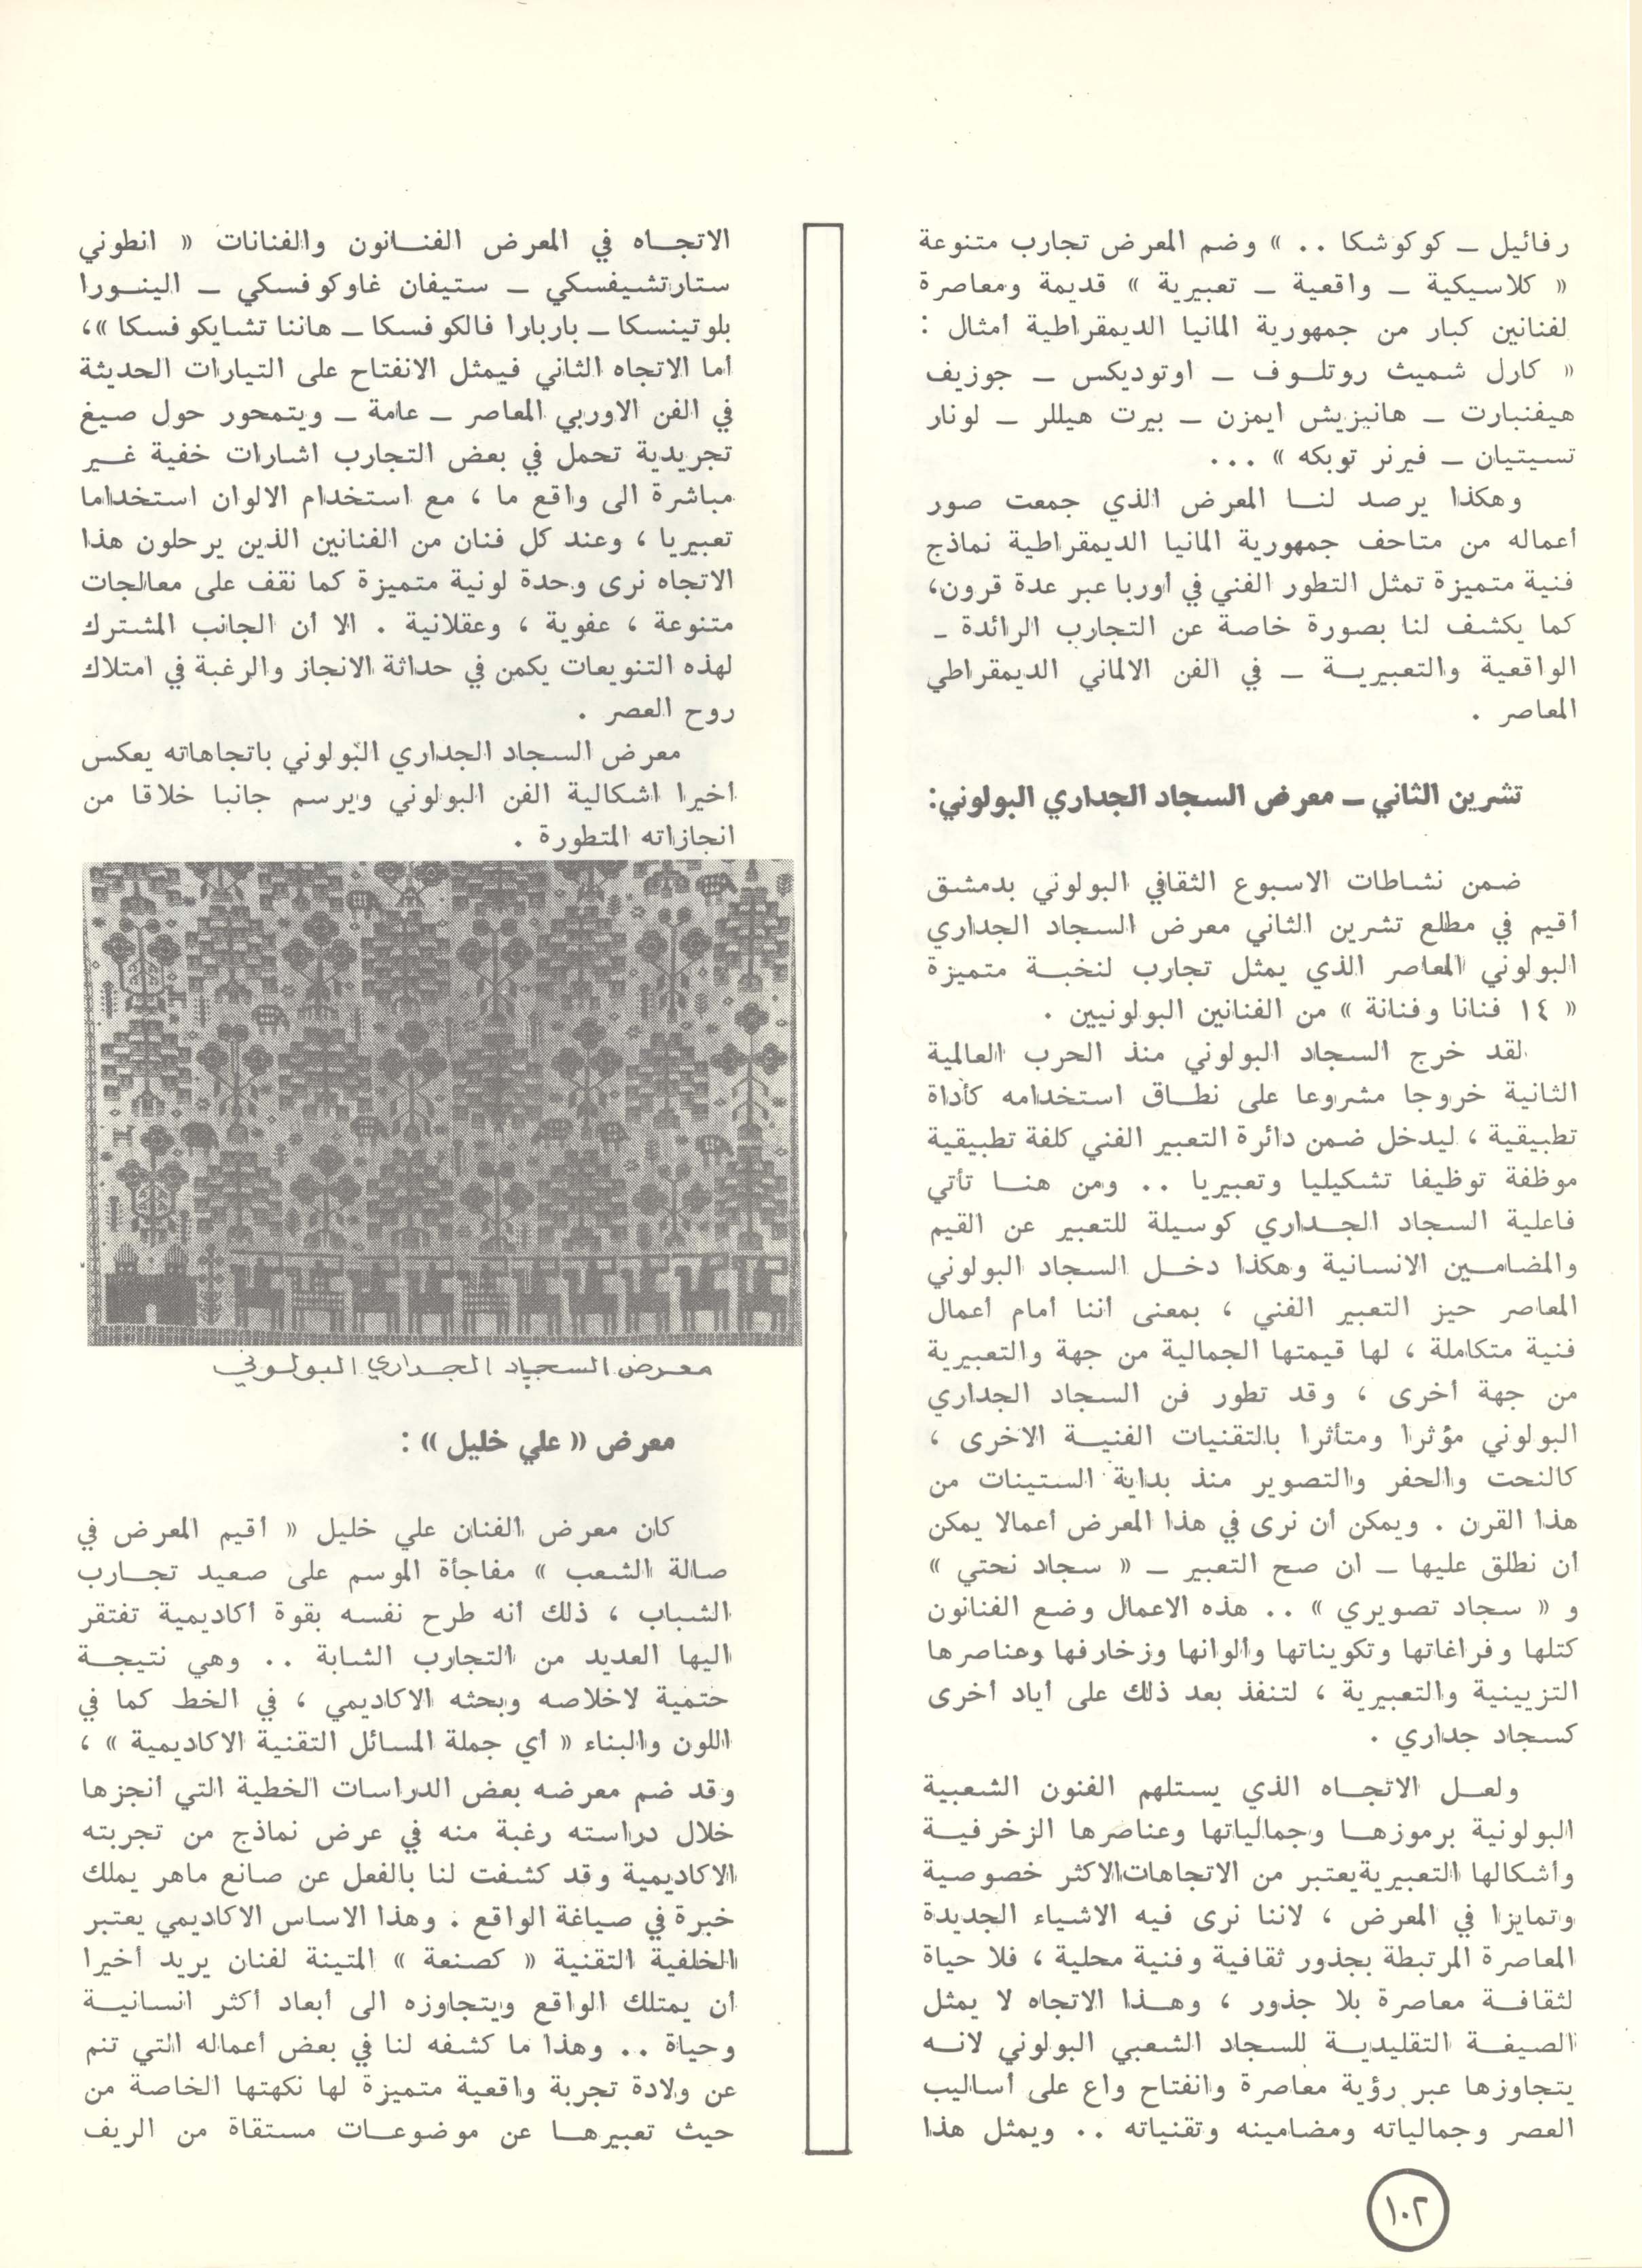 رفائيل ـ كوكوشكا .. » وضم المعرض تجارب متنوعة
« كلاسيكية ـ واقعية ـ تعبيرية » قديمة ومعاصرة
لفنانين كبار من جمهورية المانيا الديمقراطية أمثال :
« كارل شميث روتلوف ـ اوتوديكس ـ جوزيف
هيفنبارت ـ هانيزيش ايمزن ـ بيرت هيللر ـ لونار
تسيتيان ـ فيرنر توبكه » ...
وهكذا يرصد لنا المعرض الذي جمعت صور
أعماله من متاحف جمهورية المانيا الديمقراطية نماذج
فنية متميزة تمثل التطور الفني في أوربا عبر عدة قرون،
كما يكشف لنا بصورة خاصة عن التجارب الرائدة ـ
الواقعية والتعبيرية ـ في الفن الالماني الديمقراطي
المعاصر .
تشرين الثاني ـ معرض السجاد الجداري البولوني:
ضمن نشاطات الاسبوع الثقافي البولوني بدمشق
أقيم في مطلع تشرين الثاني معرض السجاد الجداري
البولوني المعاصر الذي يمثل تجارب لنخبة متميزة
« ١٤ فنانا وفنانة » من الفنانين البولونيين .
لقد خرج السجاد البولوني منذ الحرب العالمية
الثانية خروجا مشروعا على نطاق استخدامه كأداة
تطبيقية ، ليدخل ضمن دائرة التعبير الفني كلفة تطبيقية
موظفة توظيفا تشكيليا وتعبيريا .. ومن هنا تأتي
فاعلية السجاد الجداري كوسيلة للتعبير عن القيم
والمضامين الانسانية وهكذا دخل السجاد البولوني
المعاصر حيز التعبير الفني ، بمعنى أننا أمام أعمال
فنية متكاملة ، لها قيمتها الجمالية من جهة والتعبيرية
من جهة أخرى ، وقد تطور فن السجاد الجداري
البولوني مؤثرا ومتأثرا بالتقنيات الفنية الاخرى ،
كالنحت والحفر والتصوير منذ بداية الستينات من
هذا القرن . ويمكن أن نرى في هذا المعرض أعمالا يمكن
أن نطلق عليها ـ ان صح التعبير ـ « سجاد نحتي »
و « سجاد تصويري » .. هذه الاعمال وضع الفنانون
كتلها وفراغاتها وتكويناتها والوانها وزخارفها وعناصرها
التزيينية والتعبيرية ، لتنفذ بعد ذلك على أياد أخرى
كسجاد جداري .
ولعل الاتجاه الذي يستلهم الفنون الشعبية
البولونية برموزها وجمالياتها وعناصرها الزخرفية
وأشكالها التعبيرية يعتبر من الاتجاهات الاكثر خصوصية
وتمايزا في المعرض ، لاننا نرى فيه الاشياء الجديدة
المعاصرة المرتبطة بجذور ثقافية وفنية محلية ، فلا حياة
لثقافة معاصرة بلا جذور ، وهذا الاتجاه لا يمثل
الصيغة التقليدية للسجاد الشعبي البولوني لانه
يتجاوزها عبر رؤية معاصرة وانفتاح واع على أساليب
العصر وجمالياته ومضامينه وتقنياته .. ويمثل هذا
الاتجاه في المعرض الفنانون والفنانات « انطوني
ستارتشيفسكي ـ ستيفان غاوكوفسكي ـ الينورا
بلوتينسكا ـ باربارا فالكوفسكا ـ هاننا تشايكوفسكا »،
أما الاتجاه الثاني فيمثل الانفتاح على التيارات الحديثة
في الفن الاوربي المعاصر ـ عامة ـ ويتمحور حول صيغ
تجريدية تحمل في بعض التجارب اشارات خفية غير
مباشرة الى واقع ما ، مع استخدام الالوان استخداما
تعبيريا ، وعند كل فنان من الفنانين الذين يرحلون هذا
الاتجاه نرى وحدة لونية متميزة كما نقف على معالجات
متنوعة ، عفوية ، وعقلانية . الا أن الجانب المشترك
لهذه التنويعات يكمن في حداثة الانجاز والرغبة في امتلاك
روح العصر .
معرض السجاد الجداري البولوني باتجاهاته يعكس
اخيرا اشكالية الفن البولوني ويرسم جانبا خلاقا من
انجازاته المتطورة .
معرض السجاد الجداري البولوني
معرض « علي خليل » :
كان معرض الفنان علي خليل « أقيم المعرض في
صالة الشعب » مفاجأة الموسم على صعيد تجارب
الشباب ، ذلك أنه طرح نفسه بقوة أكاديمية تفتقر
اليها العديد من التجارب الشابة .. وهي نتيجة
حتمية لاخلاصه وبحثه الاكاديمي ، في الخط كما في
اللون والبناء « أي جملة المسائل التقنية الاكاديمية » ،
وقد ضم معرضه بعض الدراسات الخطية التي أنجزها
خلال دراسته رغبة منه في عرض نماذج من تجربته
الاكاديمية وقد كشفت لنا بالفعل عن صانع ماهر يملك
خبرة في صياغة الواقع . وهذا الاساس الاكاديمي يعتبر
الخلفية التقنية « كصنعة » المتينة لفنان يريد أخيرا
أن يمتلك الواقع ويتجاوزه الى أبعاد أكثر انسانية
وحياة .. وهذا ما كشفه لنا في بعض أعماله التي تنم
عن ولادة تجربة واقعية متميزة لها نكهتها الخاصة من
حيث تعبيرها عن موضوعات مستقاة من الريف
١٠٢